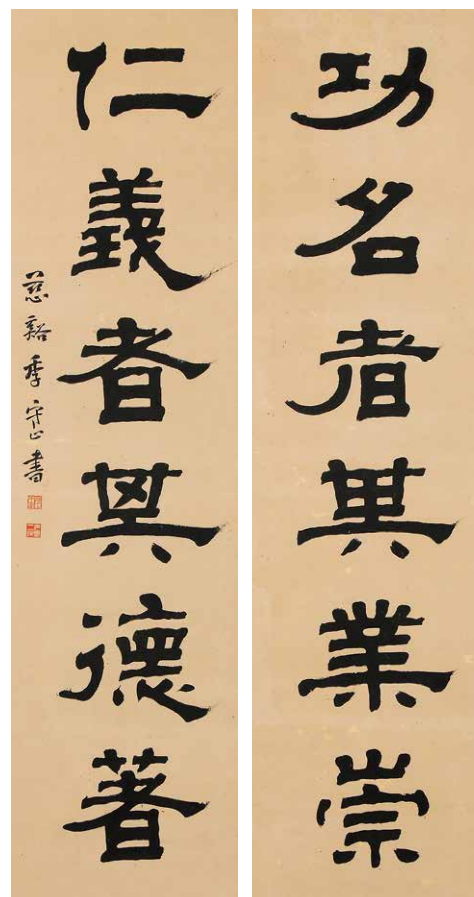 功名者其業崇
仁義者其德著
慈谿季守正書